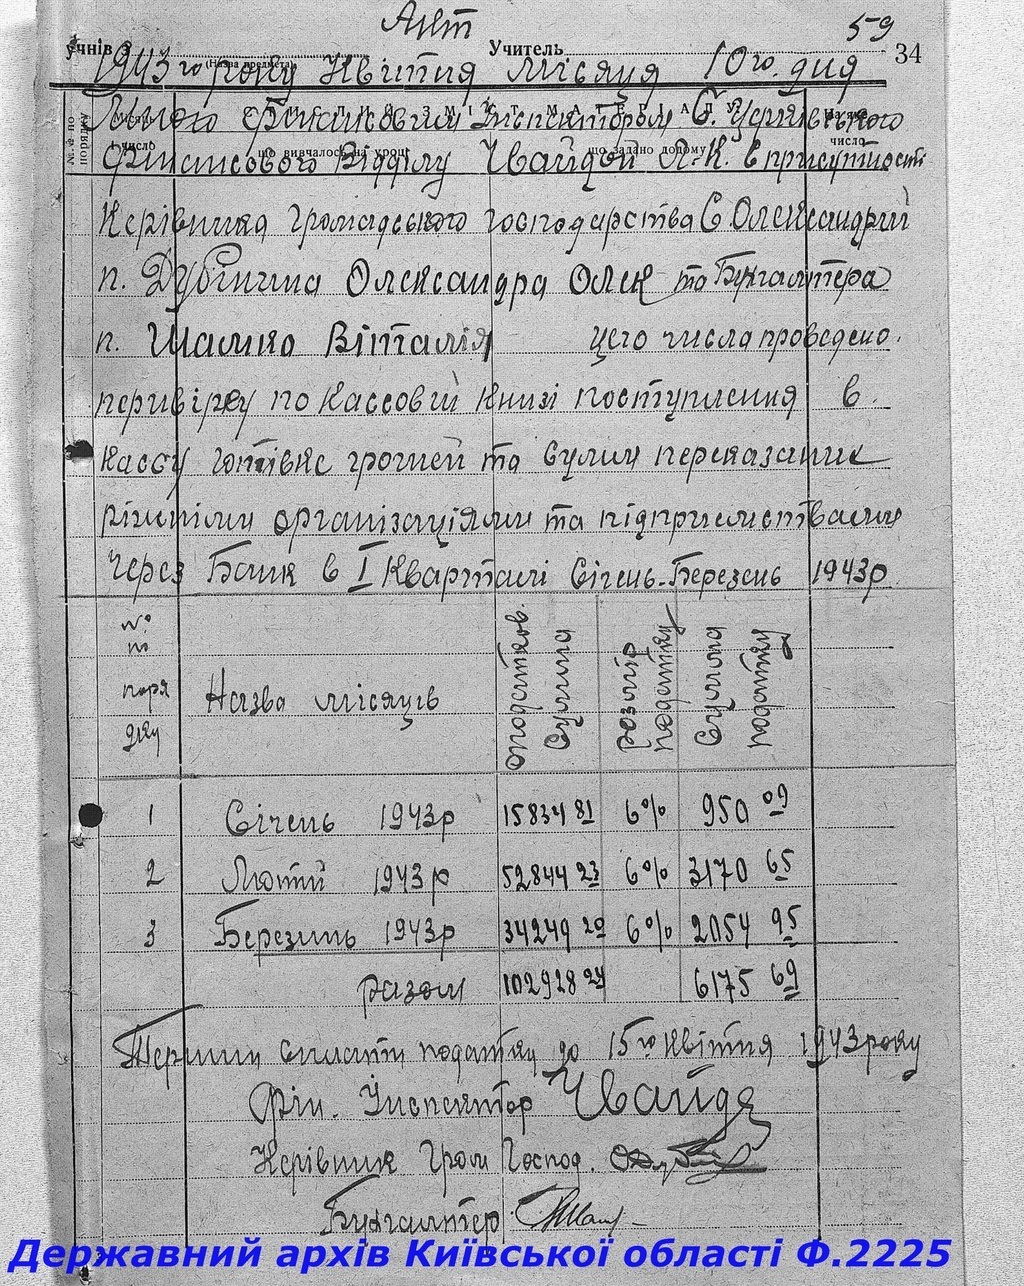 Акт
59
учнів
Учитель
34
(Назва предмета)
1943го року Квітня місяця 10го. дня
№№ по порядку
число
ЗМІСТ МАТЕРІАЛУ
на яке число
що вивчалось на уроці
що задано додому
Мною Фінансовим Інспектором
Фінансового Відділу Чвайдой Л.К. в присутності
Керівника громадського господарства С. Олександрий
п. Дубінина Олександра Олек та Бухгалтера
п. Шамко Віталія цего числа проведено.
перевірку по Кассовій Книзі поступления в.
кассу готівкє грошей та сумм переказаних
ріжними організаціями та підприємствами
через Банк в I Кварталі Січень-Березень 1943р
№
поря
дку
Назва місяців
оподатков. Сумма
розмір податку
Сумма податку
1 Січень 1943р 15834 81 6% 950 09
2 Лютий 1943р 52844 23 6% 3170 65
3 Березинь 1943р 34249 20 6% 2054 95
разом 102928 24 6175 69
Термин сплати податку до 15го квітня 1943 року
Фін. Інспектор Чвайда
Керівник Гром Господ.
Бухгалтер
Державний архів Київської області Ф.2225